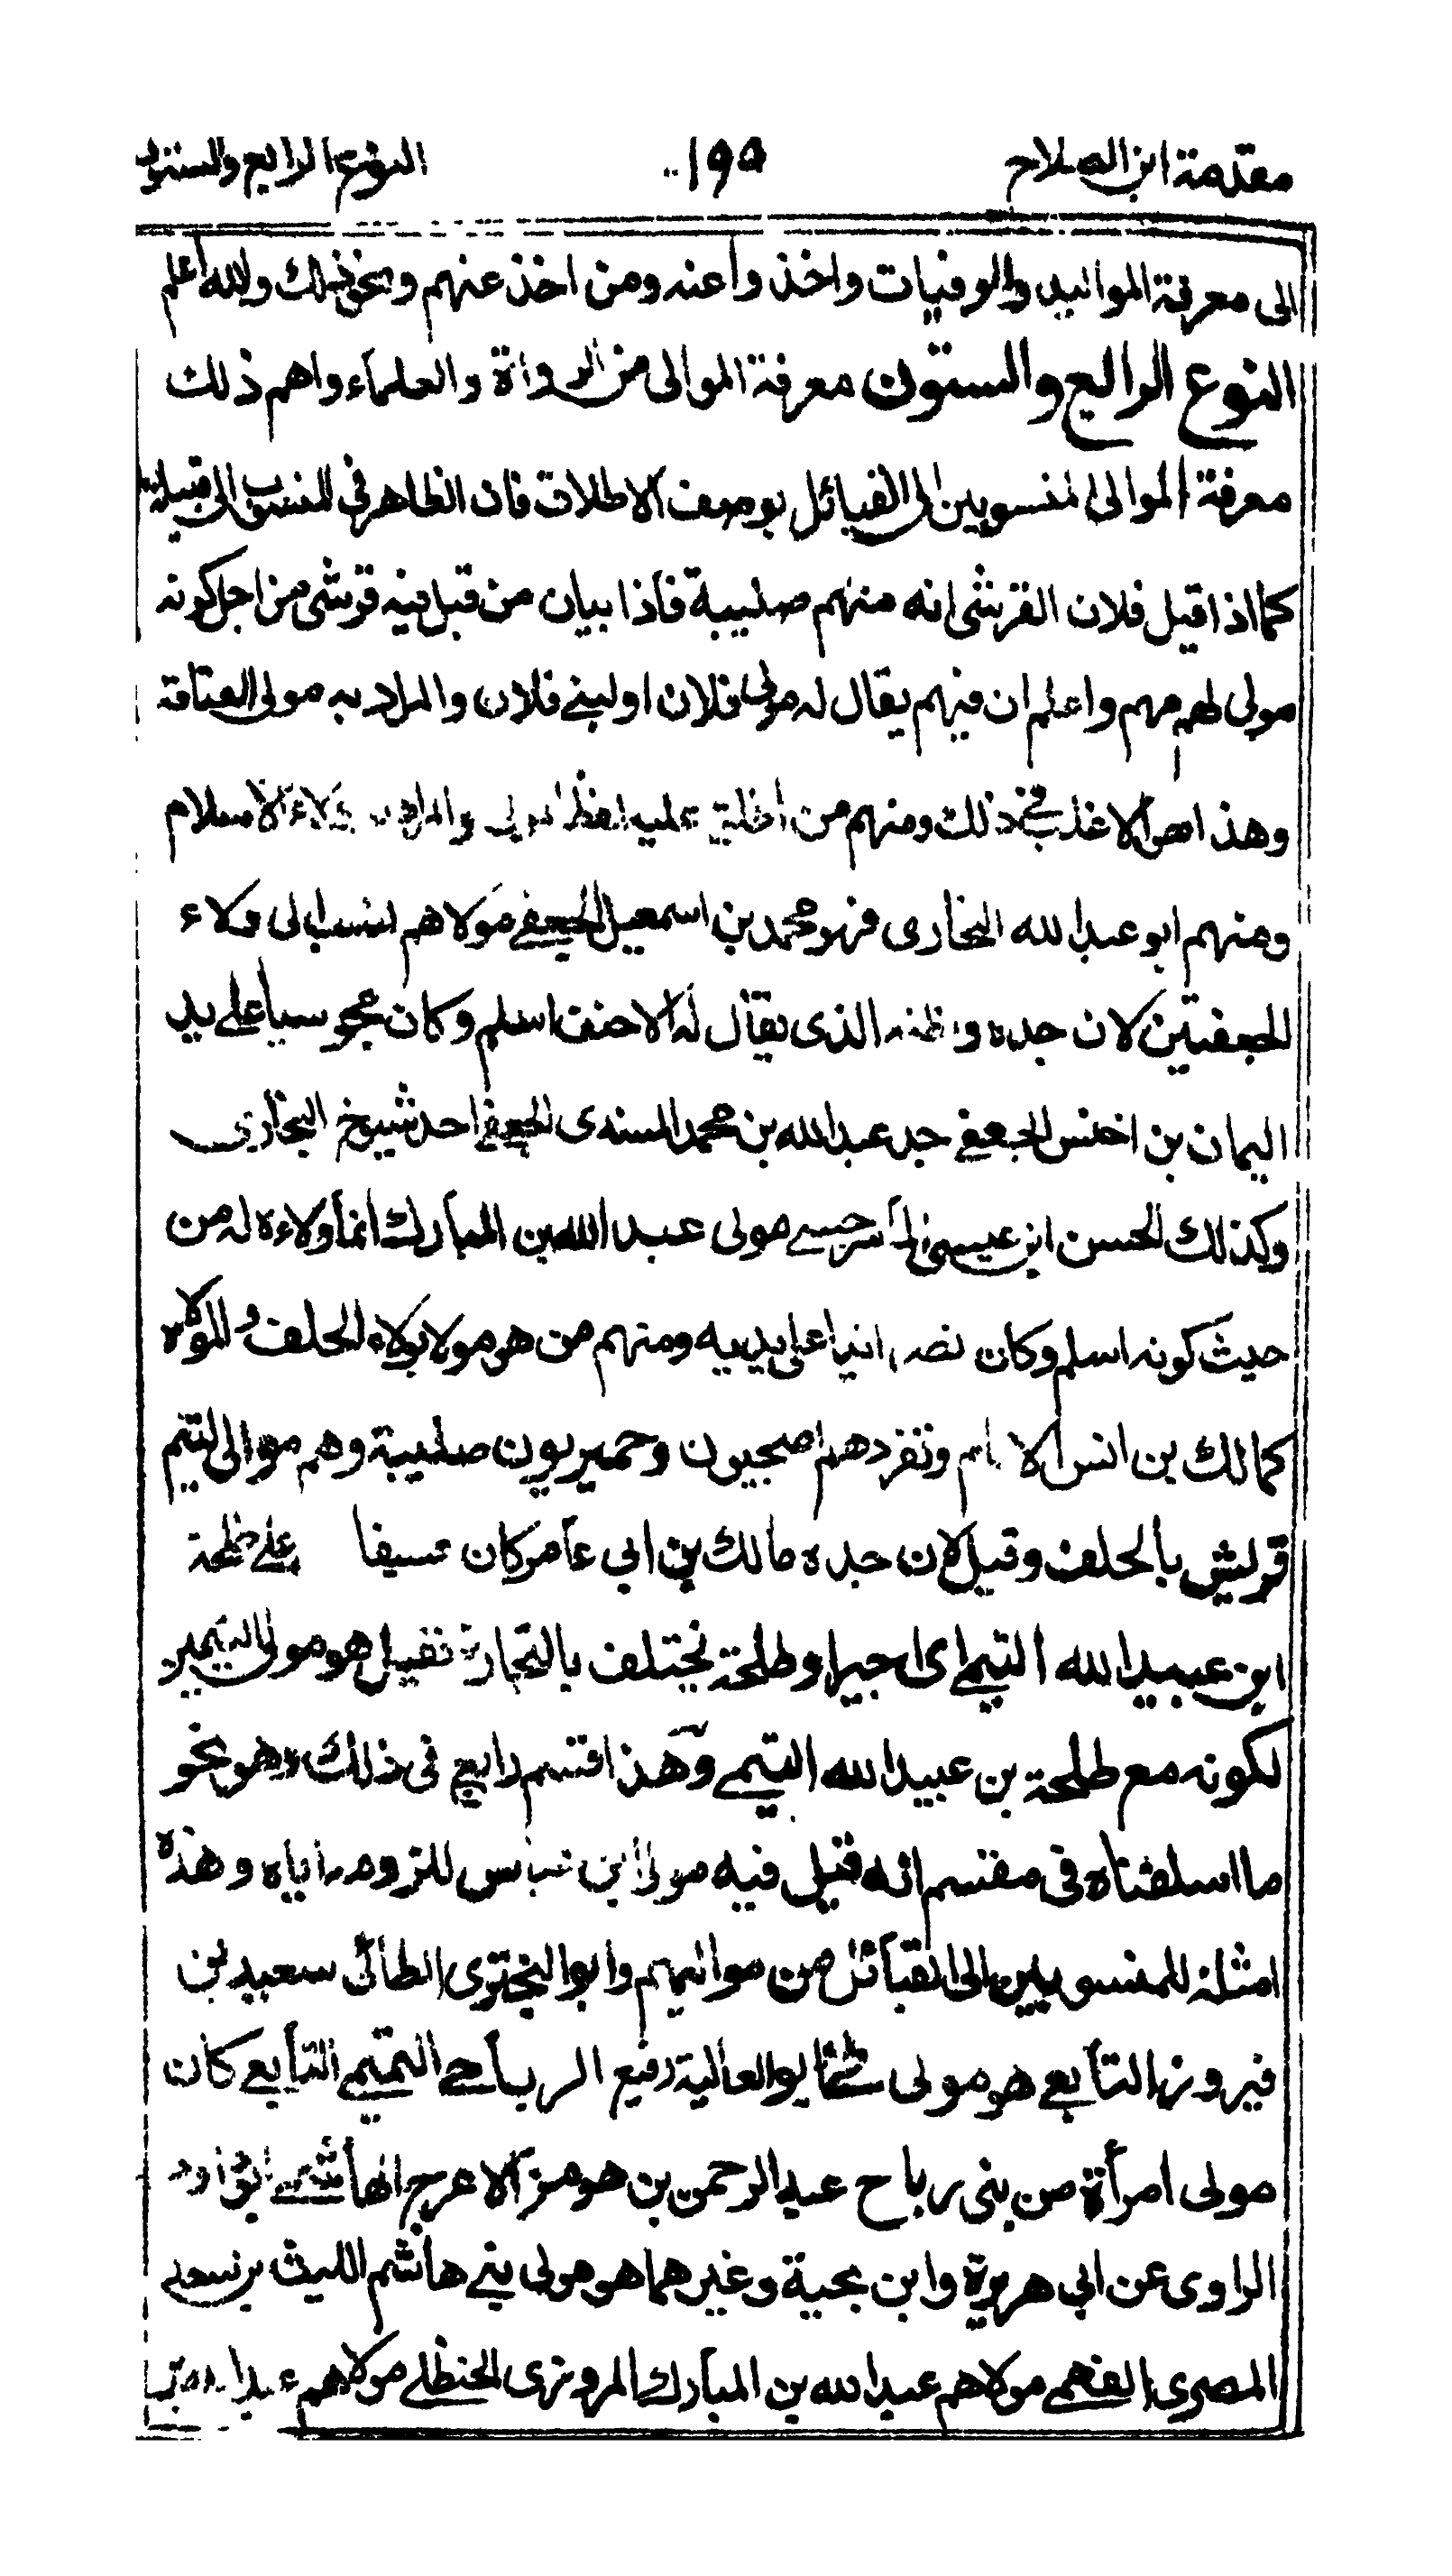 مقدمة ابن الصلاح ١٩٩ النوع الرابع والستون
الى معرفة المواليد والوفيات واخذوا عنه ومن اخذ عنهم ونحو ذلك والله أعلم
النوع الرابع والستون معرفة الموالى من الرواة والعلماء واهم ذلك
معرفة الموالى المنسوبين الى القبائل بوصف الاطلاق فان الظاهر فى المنسوب الى قبيلة
كما اذا قيل فلان القرشى انه منهم صليبة فأذا بيان من قيل فيه قرشى من اجل كونه
مولى لهم مهم واعلم ان فيهم يقال له مولى فلان او لبنى فلان والمراد به مولى العتاقة
وهذا هو الاغلب فى ذلك ومنهم من اطلق عليه لفظ المولى والمراد ولاء الاسلام
ومنهم ابو عبد الله البخارى فهو محمد بن اسمعيل الجعفى مولاهم انسب الى ولاء
الجعفيين لان جده واظنه الذى يقال له الاحنف اسلم وكان مجوسيا على يد
اليمان بن اخنس الجعفى جد عبد الله بن محمد المسندى الجعفى احد شيوخ البخارى
وكذلك الحسن ابن عيسى الماسرجسى مولى عبد الله بن المبارك انما ولاءه له من
حيث كونه اسلم وكان نصرانيا على يديه ومنهم من هو مولا بولاء الحلف والموالاة
كمالك بن انس الامام ونفرد هم اصبحيون وحميريون صليبة وهم موالى لتيم
قريش بالحلف وقيل لان جده مالك بن ابى عامر كان عسيفا على طلحة
ابن عبيد الله التيمى اى اجيرا وطلحة يختلف بالتجارة فقيل هو مولى التيميين
لكونه مع طلحة بن عبيد الله التيمى وهذا قسم رابع فى ذلك وهو نحو
ما اسلفناه فى مقسم انه قيل فيه مولى ابن عباس للزومه اياه وهذه
امثلة للمنسوبين الى القبائل من مواليهم وابو البخترى الطائى سعيد بن
فيروز التابعى هو مولى طئ ابو العالية رفيع الرياحى التميمى التابعى كان
مولى امرأة من بنى رياح عبد الرحمن بن هرمز الاعرج الهاشمى ابو داود
الراوى عن ابى هريرة وابن بحينة وغيرهما هو مولى بنى هاشم الليث بن سعد
المصرى الفهمى مولاهم عبد الله بن المبارك المروزى الحنظلى مولاهم عبد الله بن